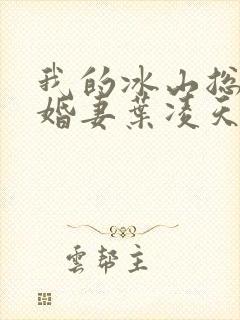 我的冰山总
婚妻葉凌天
雲幫主